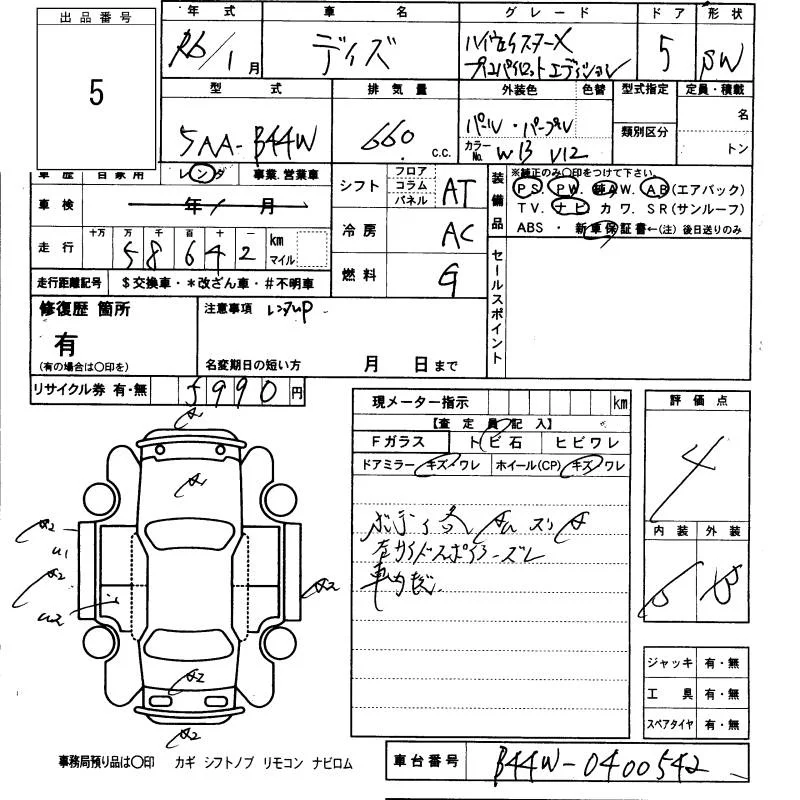 出品番号
5
年式 車名 グレード ドア 形状
R6/1月 デイズ ハイウェイスターX
プロパイロットエディション 5 SW
型式 排気量 外装色 色替 型式指定 定員・積載
5AA-B44W 660 c.c. パール・パープル 名
カラーNo. W13 V12 類別区分 トン
車歴 自家用 レンタ 事業.営業車
車検 年 / 月
走行 十万 万 千 百 十 一 km マイル
5 8 6 4 2
走行距離記号 $交換車・*改ざん車・#不明車
シフト フロア コラム パネル AT
冷房 AC
燃料 G
装備品 ※純正のみ〇印をつけて下さい。
PS. PW. 純AW. AB(エアバック)
TV. ナビ カワ. SR(サンルーフ)
ABS ・ 新車保証書←(注) 後日送りのみ
セールスポイント
修復歴 箇所
有
(有の場合は〇印を)
注意事項 レンタUP
名変期日の短い方 月 日まで
リサイクル券 有・無 5990円
現メーター指示 km
【査定員記入】
Fガラス トビ石 ヒビワレ
ドアミラー キズ・ワレ ホイール(CP) キズ・ワレ
ボディ各
左サイドスポイラーズレ
評価点
4
内装 外装
A2
A1
A2
U1
A2
U2
A2
A2
A2
ジャッキ 有・無
工具 有・無
スペアタイヤ 有・無
事務局預り品は〇印 カギ シフトノブ リモコン ナビロム
車台番号 B44W-0400542